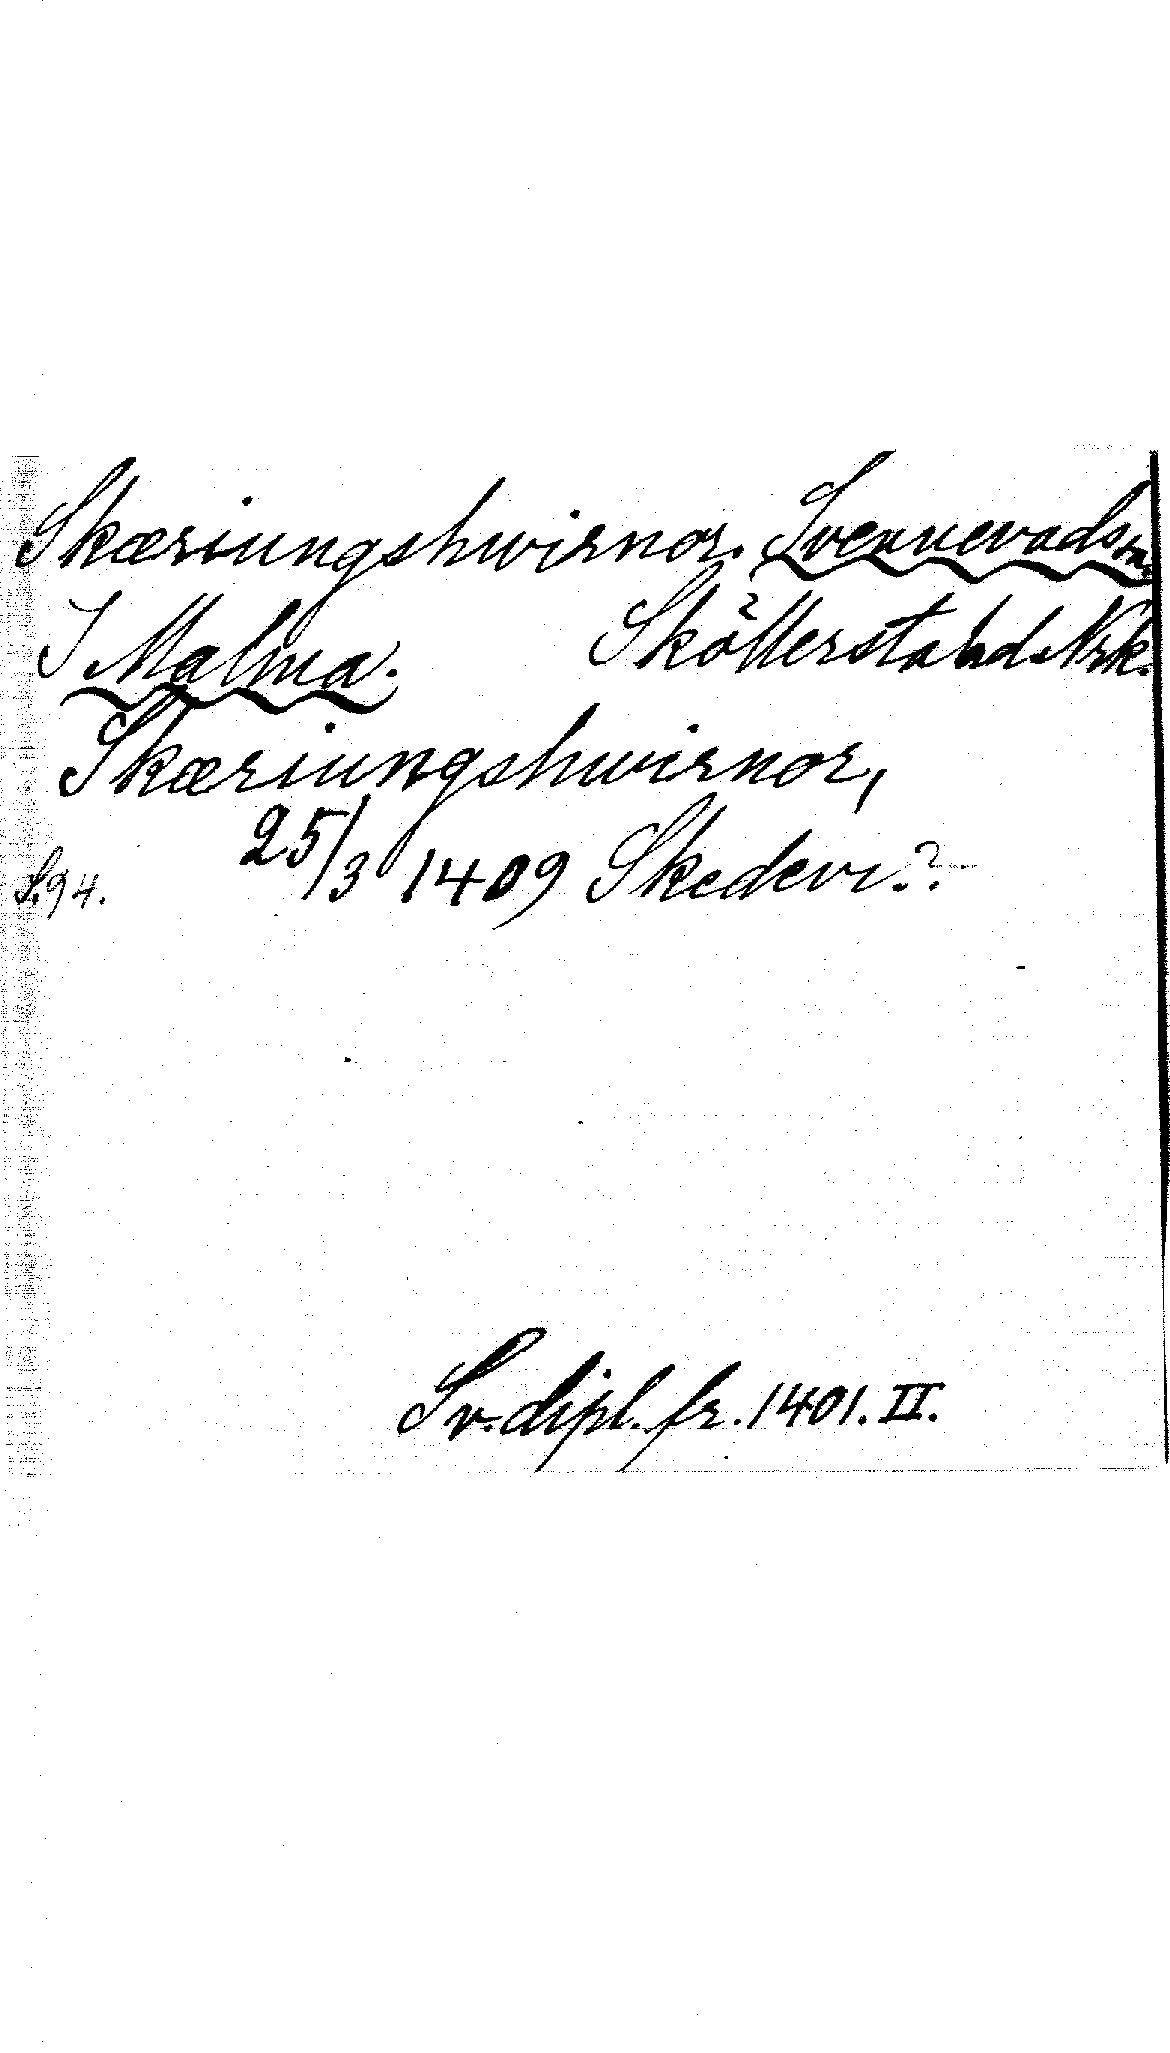 Skæriungshwirnor. Svennevads sn.
I Malma. Sköllersta hd. Nrk.
Skæriungshwirnor,
25/3 1409 Skedevi.?
S. 94.
Sv. dipl. fr. 1401. II.